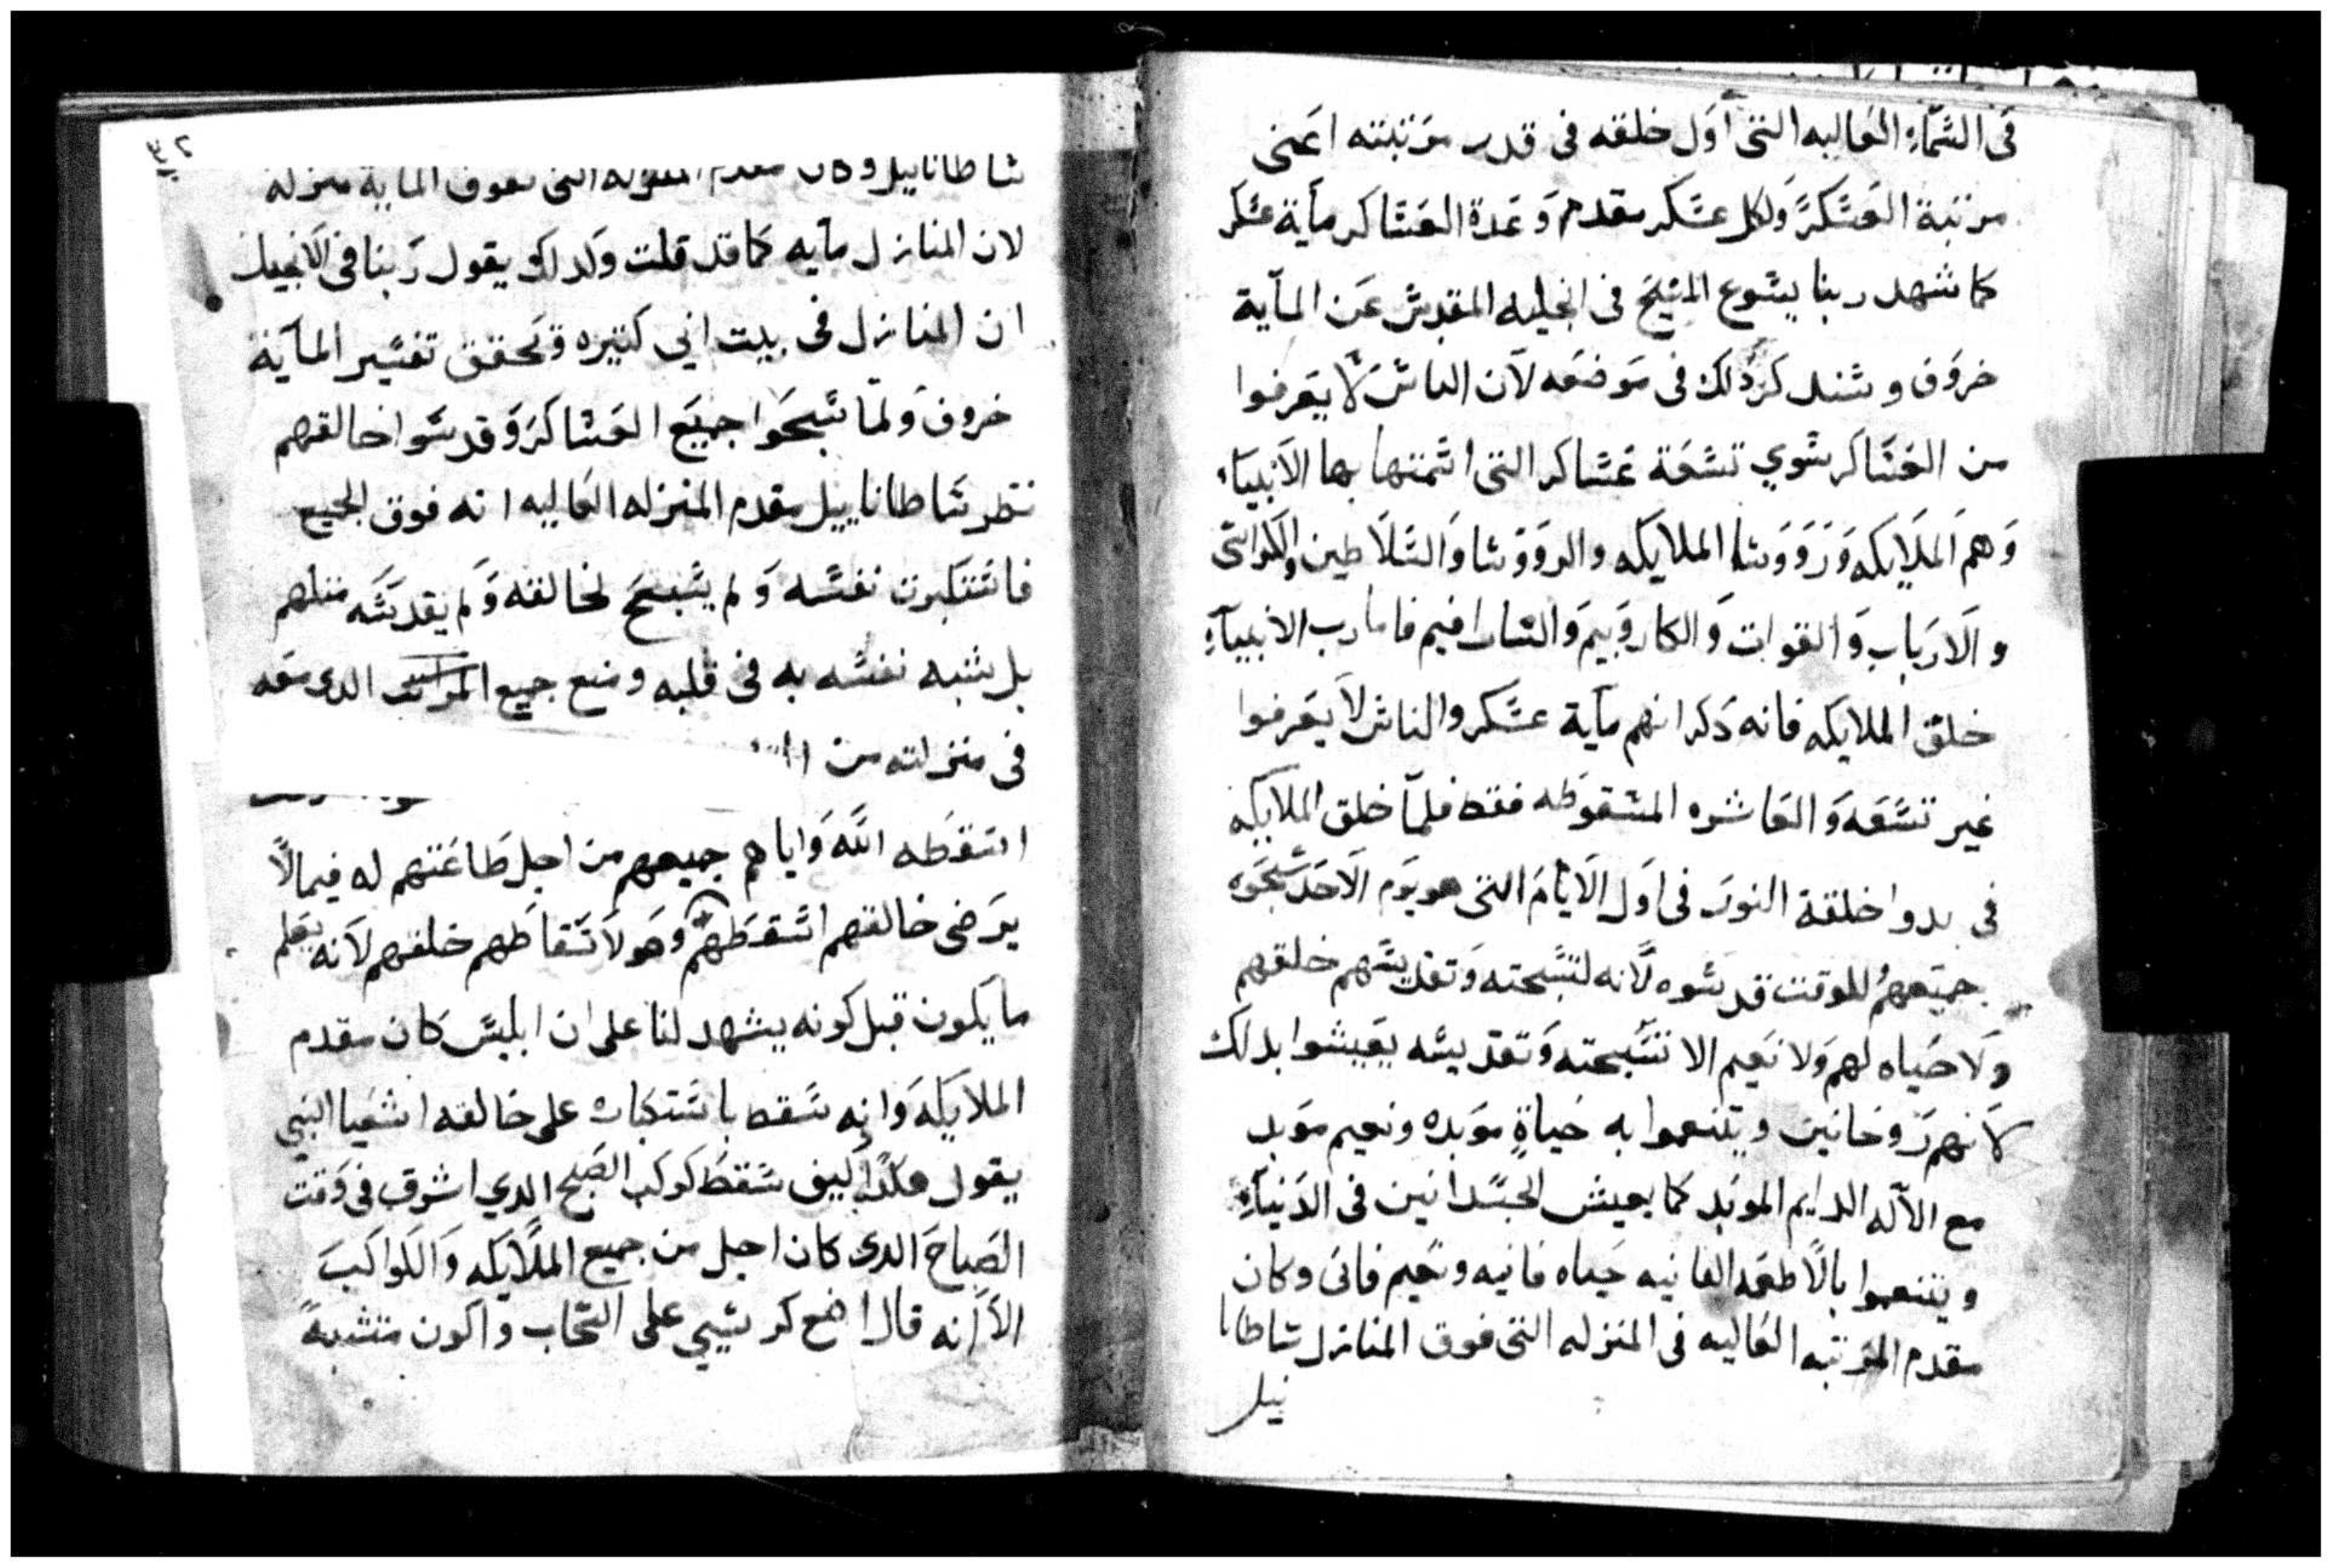 فى السّمآء العاليه التى اول خلقه فى قدر مرتبته اعنى
مرتبة العسكر ولكل عسكر مقدم وعدة العساكر مآية عسكر
كما شهد ربنا يسوع المسيح فى انجيله المقدس عن المآية
خروف وسندكر دلك فى موضعه لآن الناس لا يعرفوا
من العساكر سوي تسعة عساكر التى اسمتها بها الانبيآء
وهم الملايكه وروّوسا الملايكه والروّوسا والسلاطين والكراسى
والارباب والقوات والكاروبيم والسارافيم فاما رب الانبيآء
خلق الملايكه فانه دكر انهم مآية عسكر والناس لا يعرفوا
غير تسعه والعاشره المسقوطه فقط فلمّا خلق الملايكه
فى بدوا خلقة النور فى اول الايام التى هو يوم الاحد سبحوه
جميعهم للوقت قدسوه لانه لتسبحته وتقديسهم خلقهم
ولا حياه لهم ولا نعيم الا تسبحته وتقديسه يعيشوا بدلك
لانهم روحانين ويتنعموا به حياةٍ موبده ونعيم موبد
مع الآله الدايم الموبد كما يعيش الجسدانين فى الدنيآء
ويتنعموا بالاطعمه الفانيه حياه فانيه ونعيم فانى وكان
مقدم المرتبه العاليه فى المنزله التى فوق المنازل ساطانا
ييل
٣٢
ساطاناييل وكان مقدم المنزله التى تفوق الماية منزله
لان المنازل مآيه كما قد قلت ولدلك يقول ربنا فى الانجيل
ان المنازل فى بيت ابي كتيره وتحقق تفسير المآية
خروف ولمّا سبحوا جميع العساكر وقدسوا خالقهم
نظر ساطاناييل مقدم المنزله العاليه انه فوق الجميع
فاستكبرت نفسه ولم يسبح لخالقه ولم يقدسه متلهم
بل شبه نفسه به فى قلبه ومنع جميع المراتب الدى معه
فى منزلته من
اسقطه الله واياهم جميعهم من اجل طاعتهم له فيما لا
يرضى خالقهم اسقطهم وهو لاسقاطهم خلقهم لانه يعلم
ما يكون قبل كونه يشهد لنا على ان ابليس كان مقدم
الملايكه وانه سقط باستكباره على خالقه اشعيا النبي
يقول هكدا كيف سقط كوكب الصبح الدي اشرق فى وقت
الصباح الدى كان اجل من جميع الملايكه والكواكب
الا انه قال اضع كرسيي على السحاب واكون متشبهً